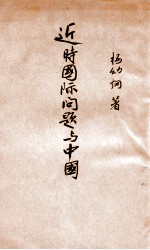 近時國际问题与中國
杨幼炯著